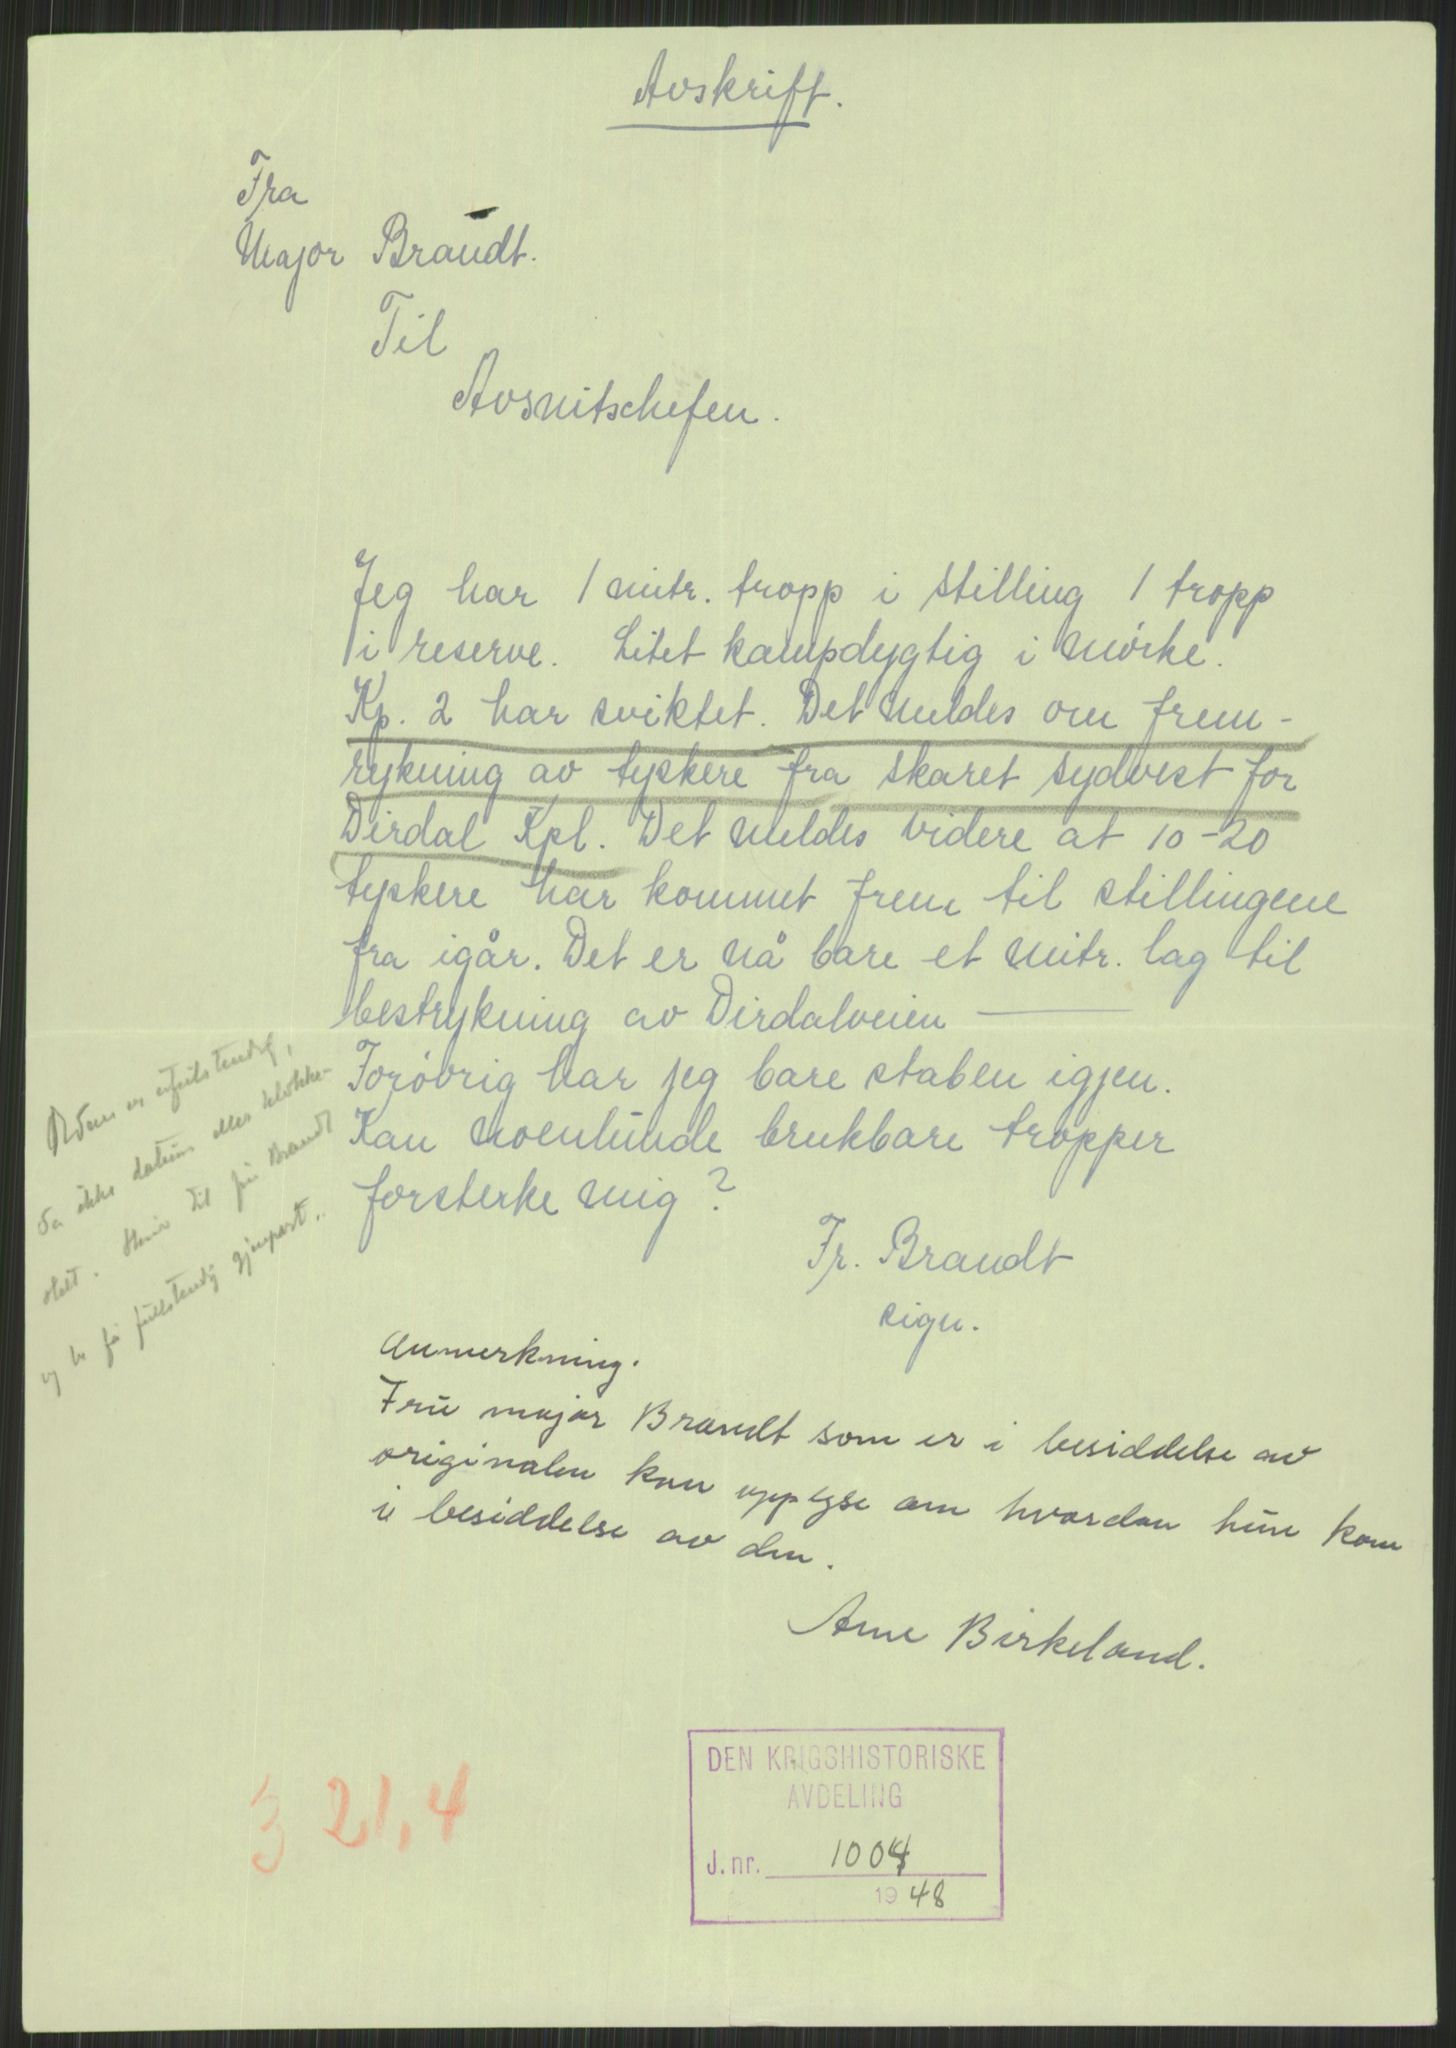 Avskrift.
Fra
Major Brandt.
Til
Avsnitschefen.
Jeg har 1 mitr. tropp i stilling 1 tropp
i reserve. Litet kampdygtig i mörke.
Kp. 2 har sviktet. Det meldes om frem-
rykning av tyskere fra skaret sydvest for
Dirdal Kpl. Det meldes videre at 10-20
tyskere har kommet frem til stillingene
fra igår. Det er nå bare et mitr. lag til
bestrykning av Dirdalveien —
Forövrig har jeg bare staben igjen.
Kan noenlunde brukbare tropper
forsterke mig?
Fr. Brandt
sign.
er ufullstendig,
da ikke datum eller klokke-
slett. Skriv til fru Brandt
og be få fullstendig gjenpart.
Anmerkning.
Fru major Brandt som er i besiddelse av
originalen kan opplyse om hvordan hun kom
i besiddelse av den.
Arne Birkeland.
3 21,4
DEN KRIGSHISTORISKE
AVDELING
J. nr. 1004
1948